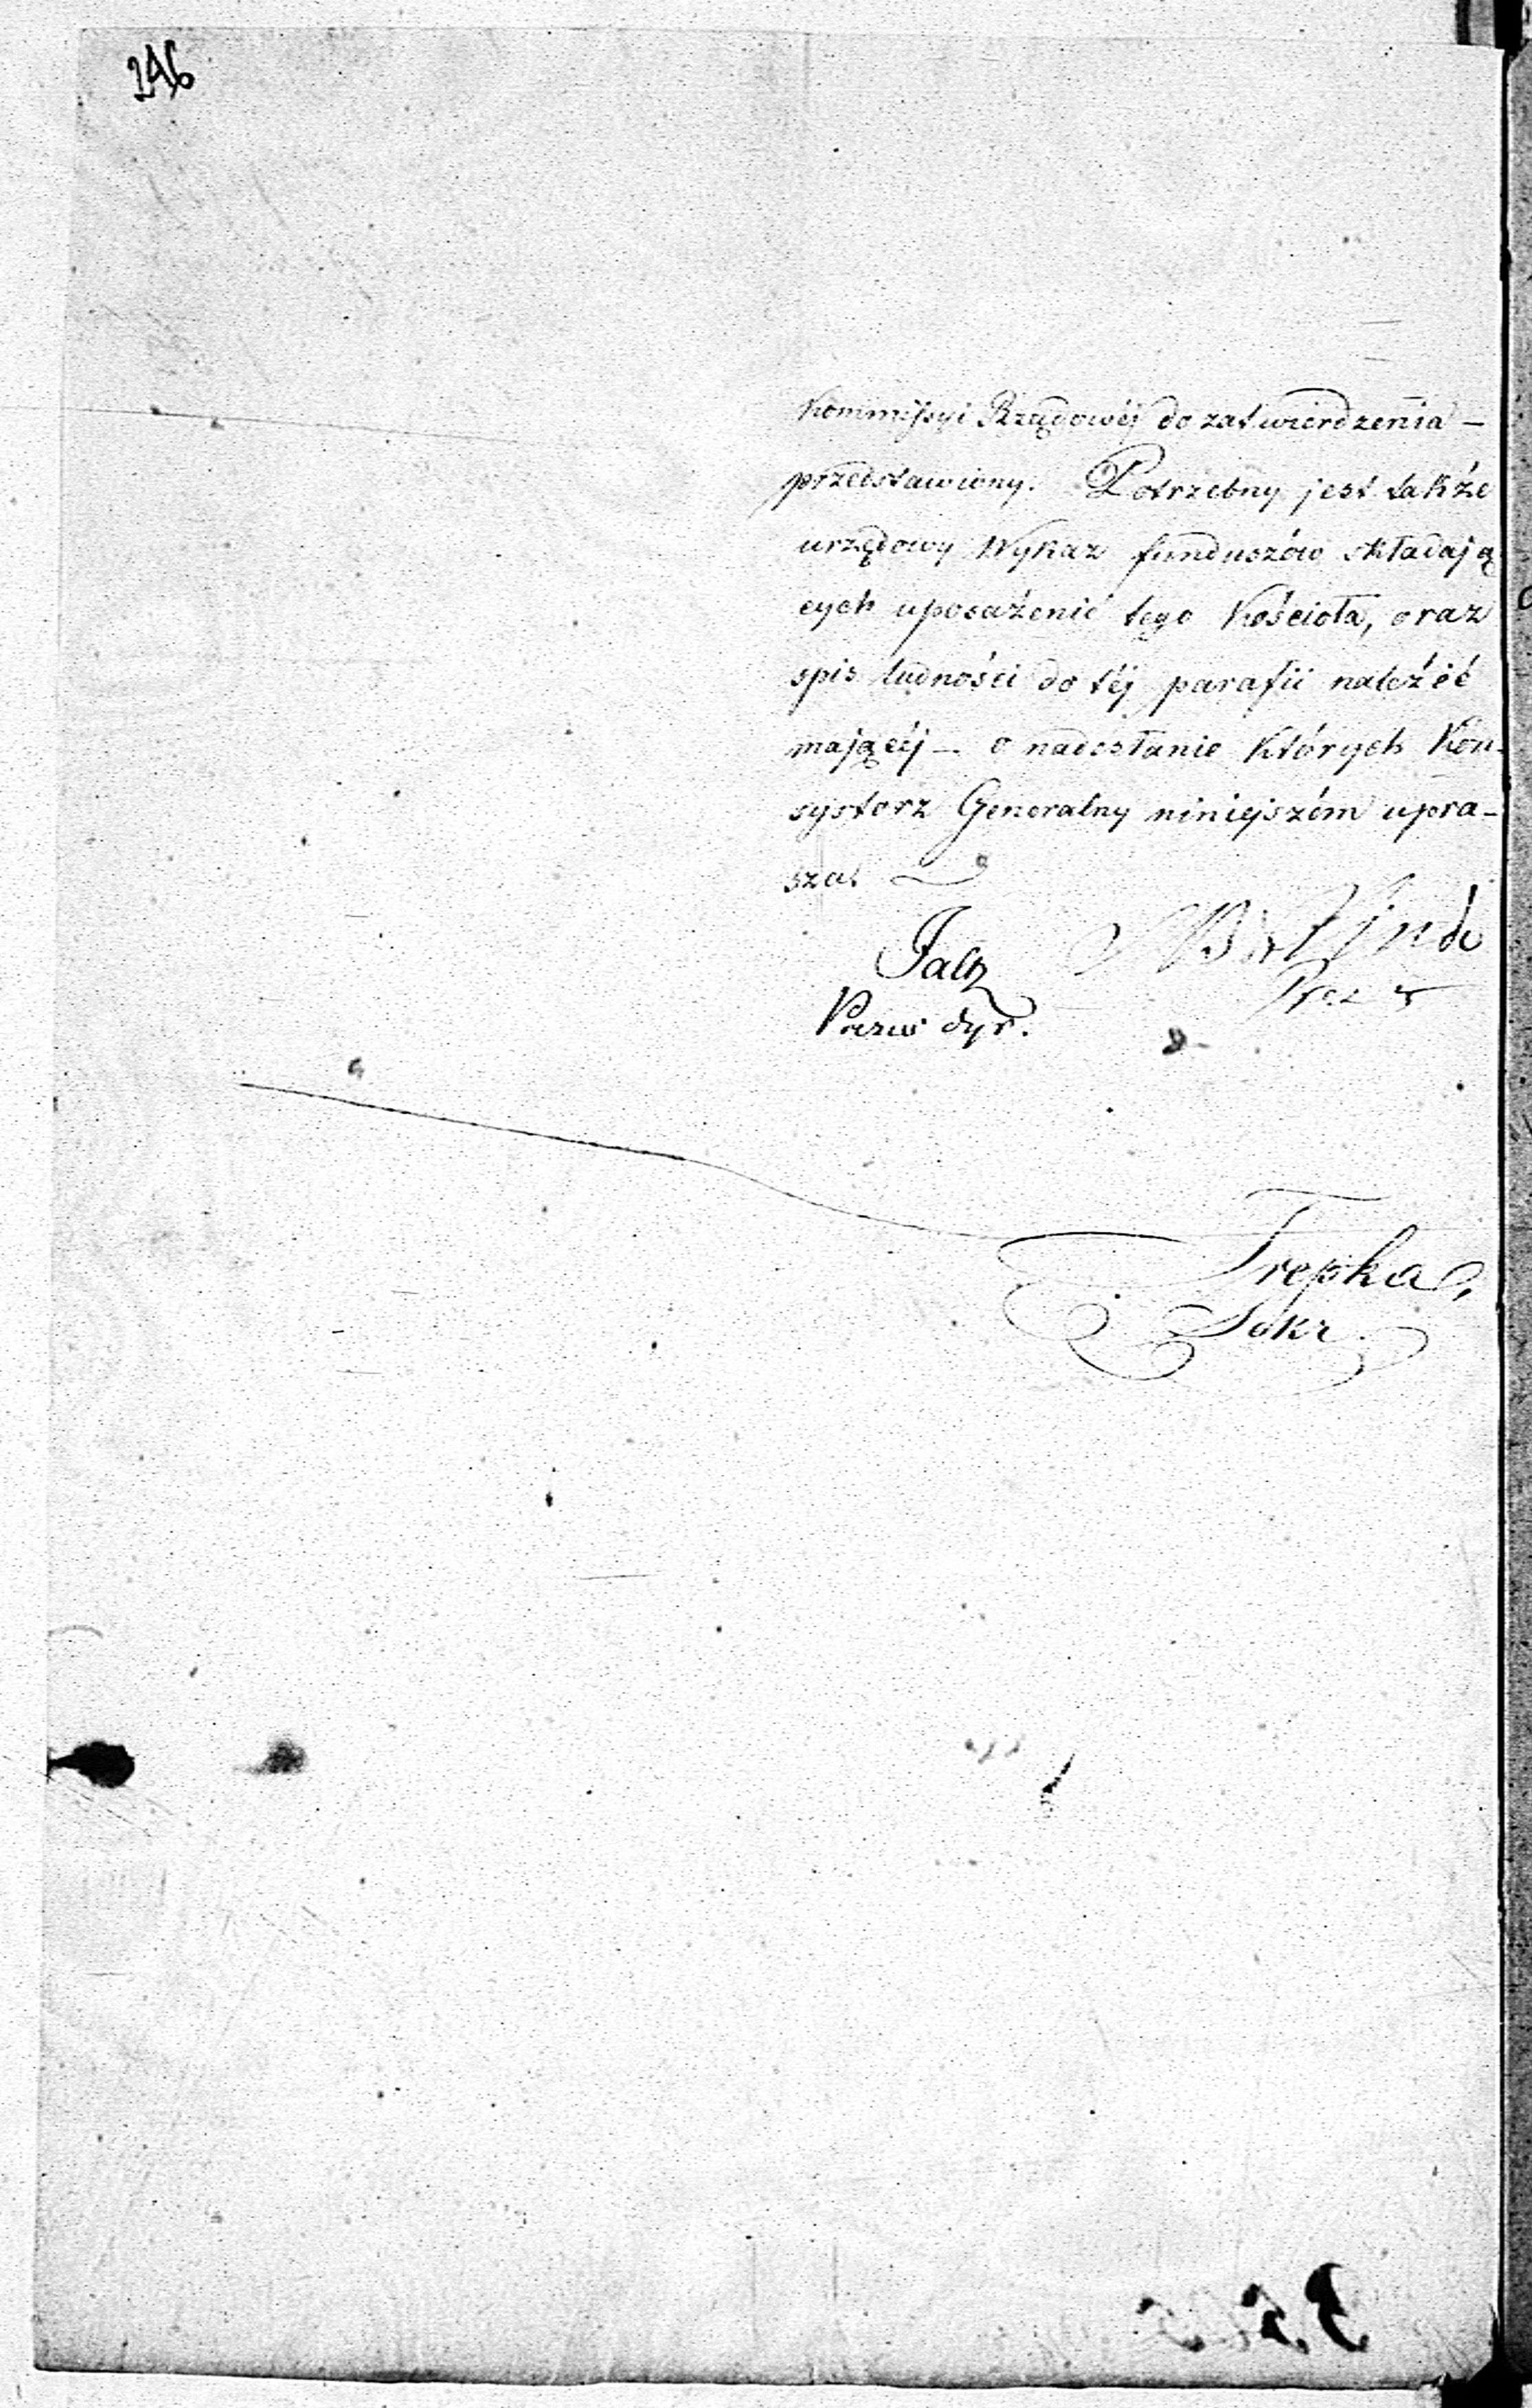 246
Kommissyi Rządowéj do zatwierdzenia –
przedstawiony. Potrzebny jest także
urzędowy Wykaz funduszów składają
cych uposażenie tego Kościoła, oraz
spis ludności do téj parafii należéć
mającéj – o nadesłanie których Kon-
systorz Generalny niniejszém upra-
sza.
Trepka,
Sekr.